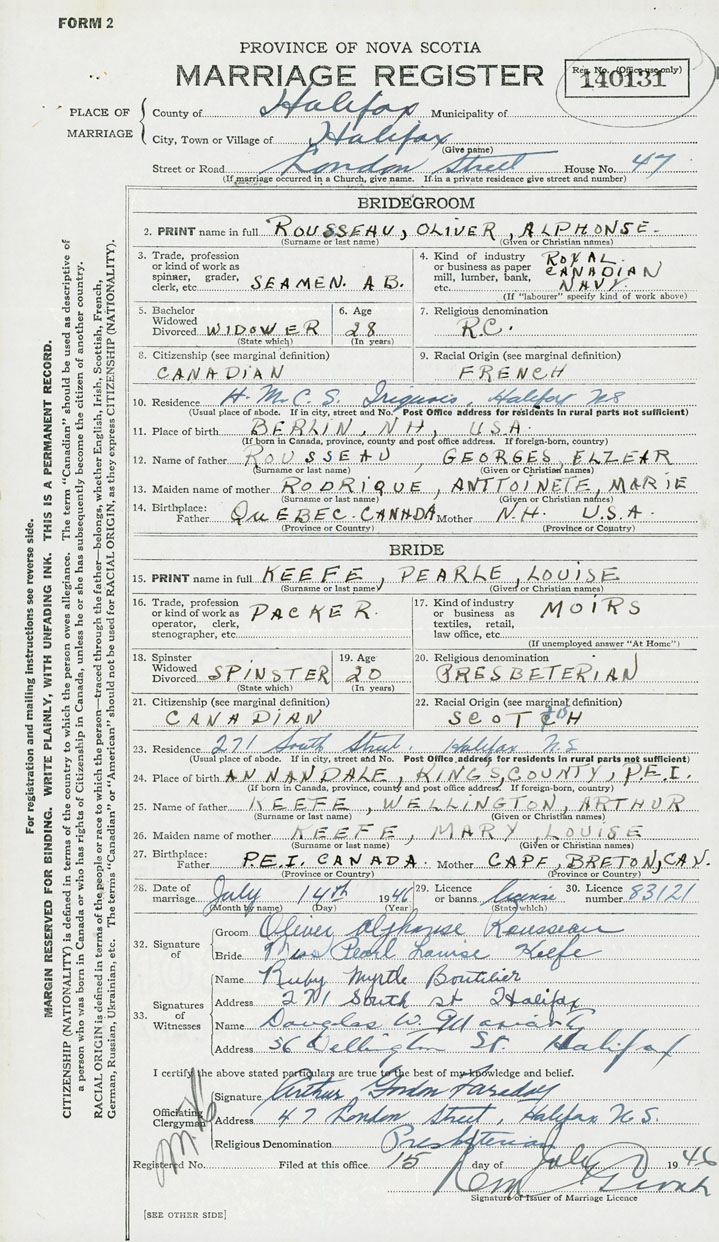 FORM 2
PROVINCE OF NOVA SCOTIA
MARRIAGE REGISTER
Reg. No. (Office use only)
140131
PLACE OF MARRIAGE
County of Halifax Municipality of
City, Town or Village of Halifax
(Give name)
Street or Road London Street House No. 47
(If marriage occurred in a Church, give name. If in a private residence give street and number)
BRIDEGROOM
2. PRINT name in full ROUSSEAU, OLIVER, ALPHONSE.
(Surname or last name) (Given or Christian names)
3. Trade, profession or kind of work as spinner, grader, clerk, etc. SEAMEN. A.B.
4. Kind of industry or business as paper mill, lumber, bank, etc. ROYAL CANADIAN NAVY.
(If "labourer" specify kind of work above)
5. Bachelor Widowed Divorced WIDOWER
(State which)
6. Age 28
(In years)
7. Religious denomination R.C.
8. Citizenship (see marginal definition) CANADIAN
9. Racial Origin (see marginal definition) FRENCH
10. Residence H.M.C.S. Iriquois, Halifax NS
(Usual place of abode. If in city, street and No. Post Office address for residents in rural parts not sufficient)
11. Place of birth BERLIN, NH, U.S.A.
(If born in Canada, province, county and post office address. If foreign-born, country)
12. Name of father ROUSSEAU, GEORGES, ELZEAR
(Surname or last name) (Given or Christian names)
13. Maiden name of mother RODRIQUE, ANTTOINETE, MARIE
(Surname or last name) (Given or Christian names)
14. Birthplace: Father QUEBEC. CANADA Mother N.H. U.S.A.
(Province or Country) (Province or Country)
BRIDE
15. PRINT name in full KEEFE, PEARLE, LOUISE
(Surname or last name) (Given or Christian names)
16. Trade, profession or kind of work as operator, clerk, stenographer, etc. PACKER.
17. Kind of industry or business as textiles, retail, law office, etc. MOIRS
(If unemployed answer "At Home")
18. Spinster Widowed Divorced SPINSTER
(State which)
19. Age 20
(In years)
20. Religious denomination PRESBETERIAN
21. Citizenship (see marginal definition) CANADIAN
22. Racial Origin (see marginal definition) SCOTCH
23. Residence 271 South Street. Halifax N.S
(Usual place of abode. If in city, street and No. Post Office address for residents in rural parts not sufficient)
24. Place of birth ANNANDALE, KINGS, COUNTY, P.E.I.
(If born in Canada, province, county and post office address. If foreign-born, country)
25. Name of father KEEFE, WELLINGTON, ARTHUR
(Surname or last name) (Given or Christian names)
26. Maiden name of mother KEEFE, MARY, LOUISE
(Surname or last name) (Given or Christian names)
27. Birthplace: Father P.E.I. CANADA. Mother CAPE, BRETON, CAN.
(Province or Country) (Province or Country)
28. Date of marriage July 14th 1946
(Month by name) (Day) (Year)
29. Licence or banns license
(State which)
30. Licence number 83121
32. Signature of
Groom Oliver Alphonse Rousseau
Bride Miss Pearl Louise Keefe
33. Signatures of Witnesses
Name Ruby Myrtle Boutilier
Address 271 South st Halifax
Name Douglas W. Moriarty
Address 36 Wellington St. Halifax
I certify the above stated particulars are true to the best of my knowledge and belief.
Officiating Clergyman
Signature Arthur Gordon Faraday
Address 47 London Street, Halifax N.S.
Religious Denomination Presbyterian
Registered No. Filed at this office 15 day of July 1946
Signature of Issuer of Marriage Licence
[SEE OTHER SIDE]
For registration and mailing instructions see reverse side.
MARGIN RESERVED FOR BINDING. WRITE PLAINLY, WITH UNFADING INK. THIS IS A PERMANENT RECORD.
CITIZENSHIP (NATIONALITY) is defined in terms of the country to which the person owes allegiance. The term "Canadian" should be used as descriptive of
a person who was born in Canada or who has rights of Citizenship in Canada, unless he or she has subsequently become the citizen of another country.
RACIAL ORIGIN is defined in terms of the people or race to which the person—traced through the father—belongs, whether English, Irish, Scottish, French,
German, Russian, Ukrainian, etc. The terms "Canadian" or "American" should not be used for RACIAL ORIGIN, as they express CITIZENSHIP (NATIONALITY).